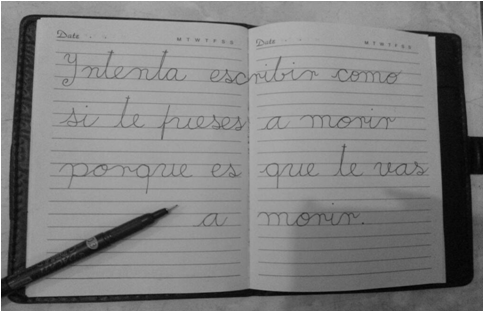 Date M T W T F S S Date M T W T F S S
Intenta escribir como
si te fueses a morir
porque es que te vas
a morir.